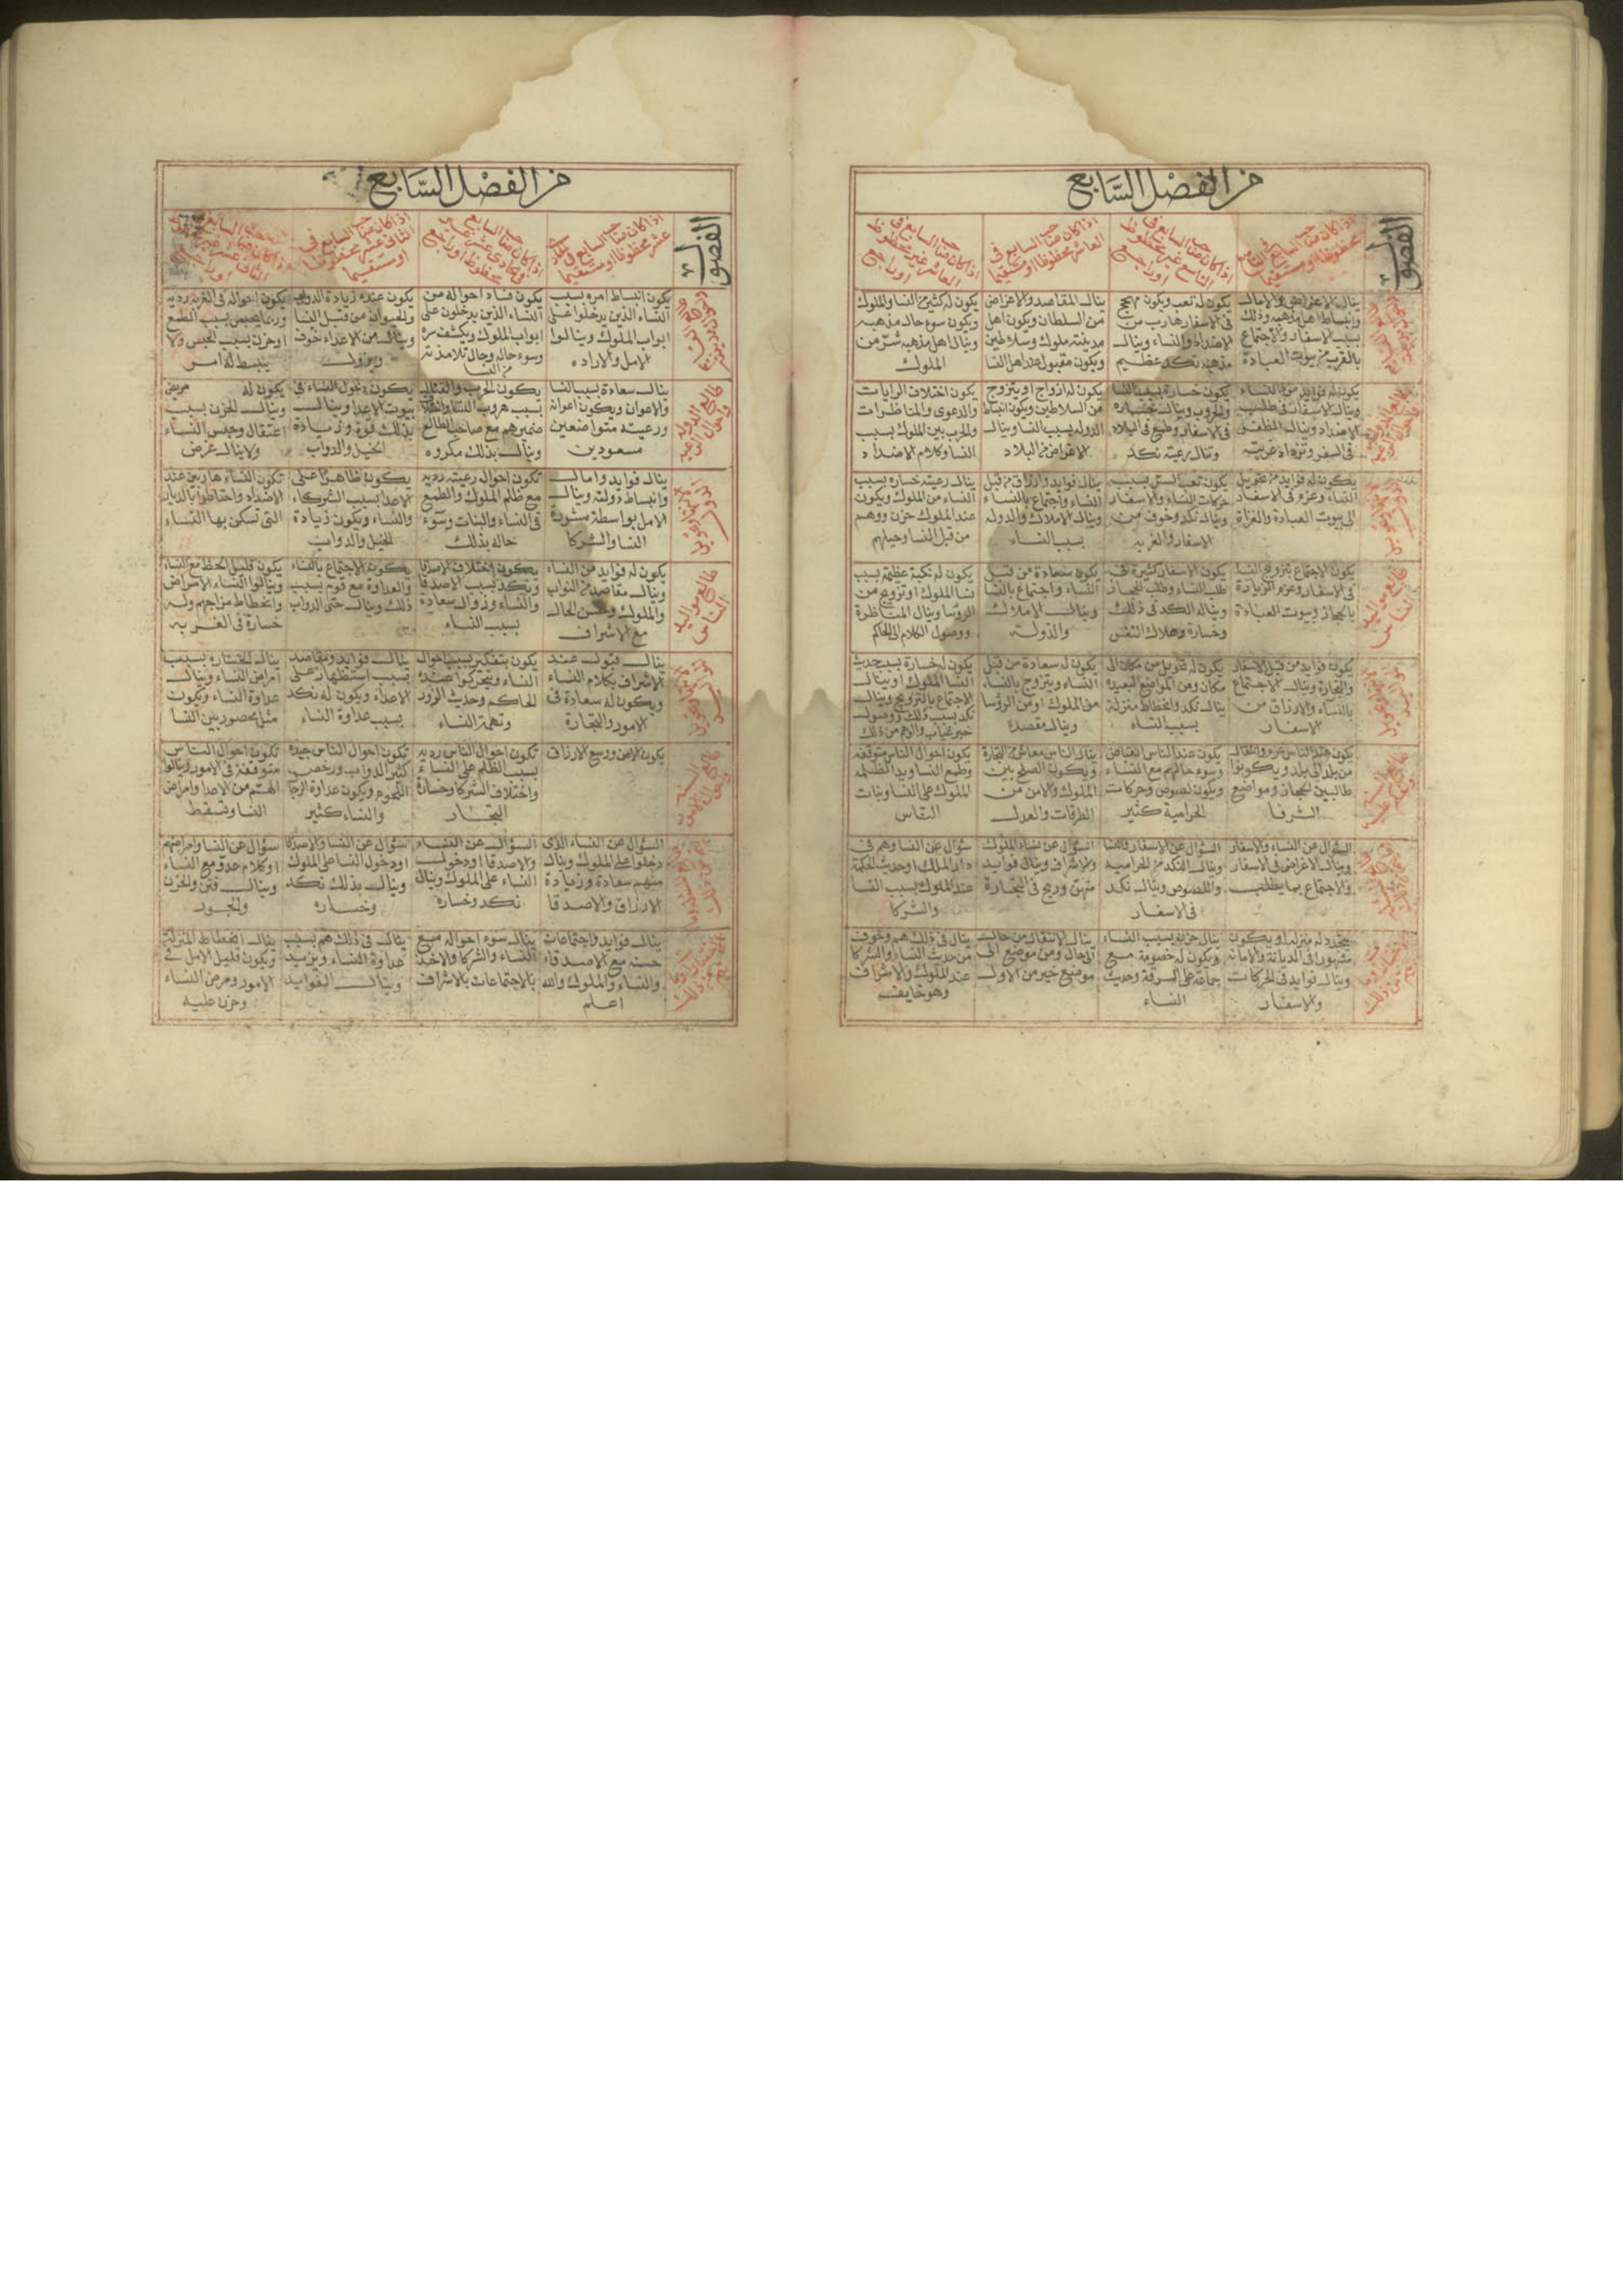 من الفصل السابع
الفصول
اذا كان صاحب السابع فى التاسع محظوظا او مستقيما
اذا كان صاحب السابع فى التاسع غير محظوظ او راجع
اذا كان صاحب السابع فى العاشر محظوظا او مستقيما
اذا كان صاحب السابع فى العاشر غير محظوظ او راجع
ينال الاغراض والامال
وانبساط اهل مذهبه وذلك
بسبب الاسفار والاجتماع
بالقرب من بيوت العبادة
يكون له تعب ويكون مهجج
فى الاسفار هارب من
الاضداد والنساء وينال
مذهبه نكد عظيم
ينال المقاصد والاغراض
من السلطان ويكون اهل
مدينته ملوك وسلاطين
ويكون مقبول عند اهل النسا
يكون له كثير من النسا والملوك
ويكون سوء حال مذهبه
وينال اهل مذهبه شر من
الملوك
يكون له فوايد من النساء
وينال الاسفار فى طلب
الاضداد وينال الظفر
فى السفر وتزداد غربته
يكون خسارة بسبب النسا
والحروب وينال خساره
فى الاسفار وطمع فى البلاد
وتنال رعيته نكد
يكون له ازواج او يتزوج
من السلاطين ويكون انبساط
الدوله بسبب النسا وينال
الاغراض من البلاد
يكون اختلاف الرايات
والدعوى والمناظرات
والحرب بين الملوك بسبب
النسا وكلام الاضداد
يكون له فوايد من تحويل
النساء وعزم فى الاسفار
الى بيوت العبادة والغزاة
يكون تعب السر بسبب
حركات النساء والاسفار
وينال نكد وخوف من
الاسفار والغربه
ينال فوايد وارزاق من قبل
النساء واجتماع بالنساء
وينال الاملاك والدوله
بسبب النساء
ينال رعيته خساره بسبب
النساء من الملوك ويكون
عند الملوك حزن ووهم
من قبل النسا وحيلهم
يكون الاجتماع بتزويج النسا
فى الاسفار وعزم الزيارة
بالحجاز وبيوت العبادة
يكون الاسفار كثيرة فى
طلب النساء وطلب الحجاز
ويناله الكد فى ذلك
وخسارة وهلاك النفس
يكون سعادة من قبل
النساء واجتماع بالنسا
وينال الاملاك
والدولة
يكون له نكبة عظيمه بسبب
نسا الملوك او تزويج من
الروسا وينال المناظرة
ووصول الكلام الى الحاكم
يكون فوايد من قبل الاسفار
والتجارة وينال الاجتماع
بالنساء والارزاق من
الاسفار
يكون له تحويل من مكان الى
مكان ومن المواضع البعيده
ينال نكد وانحطاط منزلة
بسبب النساء
يكون له سعادة من قبل
النساء ويتزوج بالنساء
من الملوك او من الرؤسا
وينال مقصده
يكون له خسارة بسبب حديث
النسا الملوك او ينال
الاجتماع بالتزويج وينال
نكد بسبب ذلك ووصول
خبر غياب والهم من ذلك
يكون عند الناس عزم وانتقال
من بلد الى بلد ويكونوا
طالبين الحجاز ومواضع
الشرفا
يكون عند الناس انقباض
وسوء حالهم مع النساء
ويكون لصوص وحركات
الحرامية كثير
ينال الناس معاش من التجارة
ويكون الصلح بين
الملوك والامن من
الطرقات والعدل
يكون احوال الناس متوقفه
وطمع النسا ويد الظلمه
الملوك على النسا وبنات
الناس
السؤال عن النساء والاسفار
وينال الاغراض فى الاسفار
والاجتماع بما يطلب
السؤال عن الاسفار والنسا
وينال النكد من الحراميه
واللصوص وينال نكد
فى الاسفار
السؤال عن نساء الملوك
والاشراف وينال فوايد
منهن وربح فى التجارة
سؤال عن النسا وهم فى
دار الملك او حديث الحكمة
عند الملوك بسبب النسا
والشركا
يتجدد له منزله او يكون
مشهورا فى الديانة والامانه
وينال فوايد فى الحركات
والاسفار
ينال حزن بسبب النساء
ويكون له خصومة مع
جماعة على السرقة وحديث
النساء
ينال الانتقال من حالة
الى حال ومن موضع الى
موضع خير من الاول
ينال فى ذلك هم وخوف
من حديث النساء والشركا
عند الملوك والاشراف
وهو خايف
من الفصل السابع
الفصول
اذا كان صاحب السابع فى الحادى عشر محظوظا او مستقيما
اذا كان صاحب السابع فى الحادى عشر غير محظوظ او راجع
اذا كان صاحب السابع فى الثانى عشر محظوظا او مستقيما
يكون انبساط امره بسبب
النساء الذين يدخلوا على
ابواب الملوك وينالوا
الامل والاراده
يكون فساد احواله من
النساء الذين يدخلون على
ابواب الملوك ويكشف سره
وسوء حاله وحال تلامذته
من النسا
يكون عنده زيادة الدواب
والحيوان من قبل النسا
وينال من الاعداء خوف
ويزول
يكون احواله فى الغربه رديه
وربما يحبس بسبب الطمع
او حزن بسبب الحبس ولا
ينبسط له امر
ينال سعادة بسبب النسا
والاعوان ويكون اعوانه
ورعيته متواضعين
مسعودين
يكون الحرب والقتال
بسبب هروب النسا
ضميرهم مع صاحب الطالع
وينال بذلك مكروه
يكون دخول النساء فى
بيوت الاعدا وينال
بذلك قوة وزيادة
الخيل والدواب
يكون له مريض
وينال الحزن بسبب
اعتقال وحبس النساء
ولا ينال غرض
ينال فوايد وامال
وانبساط دولة وينال
الامل بواسطة مشورة
النسا والشركا
تكون احوال رعيته رديه
مع ظلم الملوك والطمع
فى النساء والبنات وسوء
حاله بذلك
يكون ظاهرا على
الاعدا بسبب الشركاء
والنساء ويكون زيادة
الخيل والدواب
تكون النساء هاربين عند
الاضداد واحتاطوا بالديار
التى تسكن بها النساء
يكون له فوايد من النساء
وينال مقاصد من النواب
والملوك وحسن الحال
مع الاشراف
يكون اختلاف الاصدقا
ونكد بسبب الاصدقا
والنساء وزوال سعاده
بسبب النساء
يكون الاجتماع بالنساء
والعداوة مع قوم بسبب
ذلك وينال حتى الدواب
يكون قليل الحظ مع النساء
وينالوا النساء الامراض
وانحطاط مزاجهم وله
خسارة فى الغربه
ينال قبول عند
الاشراف بكلام النساء
ويكون له سعادة فى
الامور والتجارة
يكون يتفكر بسبب احوال
النساء ويتحركوا عنده
للحاكم وحديث الزور
وتهمة النساء
ينال فوايد ومقاصد
بسبب استظهار على
الاعداء ويكون له نكد
بسبب عداوة النساء
ينال الخساره بسبب
امراض النساء وينال
عداوة النساء ويكون
مثل محصور بين النسا
يكون الامن وتوسع الارزاق
تكون احوال الناس رديه
بسبب الظلم على النساء
واختلاف الشركا وخسارة
التجار
تكون احوال الناس جيده
كثير الدواب ورخص
اللحوم ويكون عداوة الرجا
والنساء كثير
تكون احوال الناس
متوقفة فى الامور وينالوا
الهم من الاعدا وامراض
النسا وتسقط
السؤال عن النساء الذى
دخلوا على الملوك وينال
منهم سعادة وزيادة
الارزاق والاصدقا
السؤال عن النساء
والاصدقا او دخول
النساء على الملوك وينال
نكد وخساره
سؤال عن النسا والاصدقا
او دخول النسا على الملوك
وينال بذلك نكد
وخساره
سؤال عن النسا وامراضهم
او كلام عدو مع النساء
وينال فتن والحزن
ينال فوايد واجتماعات
حسنه مع الاصدقاء
والنساء والملوك والله
اعلم
ينال سوء احواله مع
النساء والشركا والاخذ
بالاجتماعات بالاشراف
ينال فى ذلك هم بسبب
عداوة النساء
وينال الفوايد
ينال انحطاط المنزلة
ويكون قليل الامل فى
الامور ومرض النساء
وحزن عليه